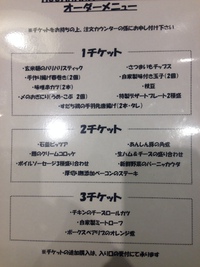 オーダーメニュー
※チケットをお持ちの上、注文カウンターの係にお申し付け下さい
1チケット
・玄米麺のパリパリスティック
・さつまいもチップス
・手作り揚げ春巻き(2個)
・自家製味付き玉子(2個)
・味噌串カツ(2本)
・枝豆
・〆のおにぎり(うめ・こぶ 2個)
・特製デザートプレート2種盛
・すだち鶏の手羽先唐揚げ(2本・タレ)
2チケット
・石釜ピッツァ
・あんしん豚の角煮
・蟹のクリームコロッケ
・生ハム&チーズの盛り合わせ
・ボイルソーセージ3種盛り合わせ
・新鮮野菜のバーニャカウダ
・厚切り無添加ベーコンのステーキ
3チケット
・チキンのチーズロールカツ
・自家製ミートローフ
・ポークスペアリブのオレンジ煮
※チケットの追加購入は、入り口の受付にて承ります